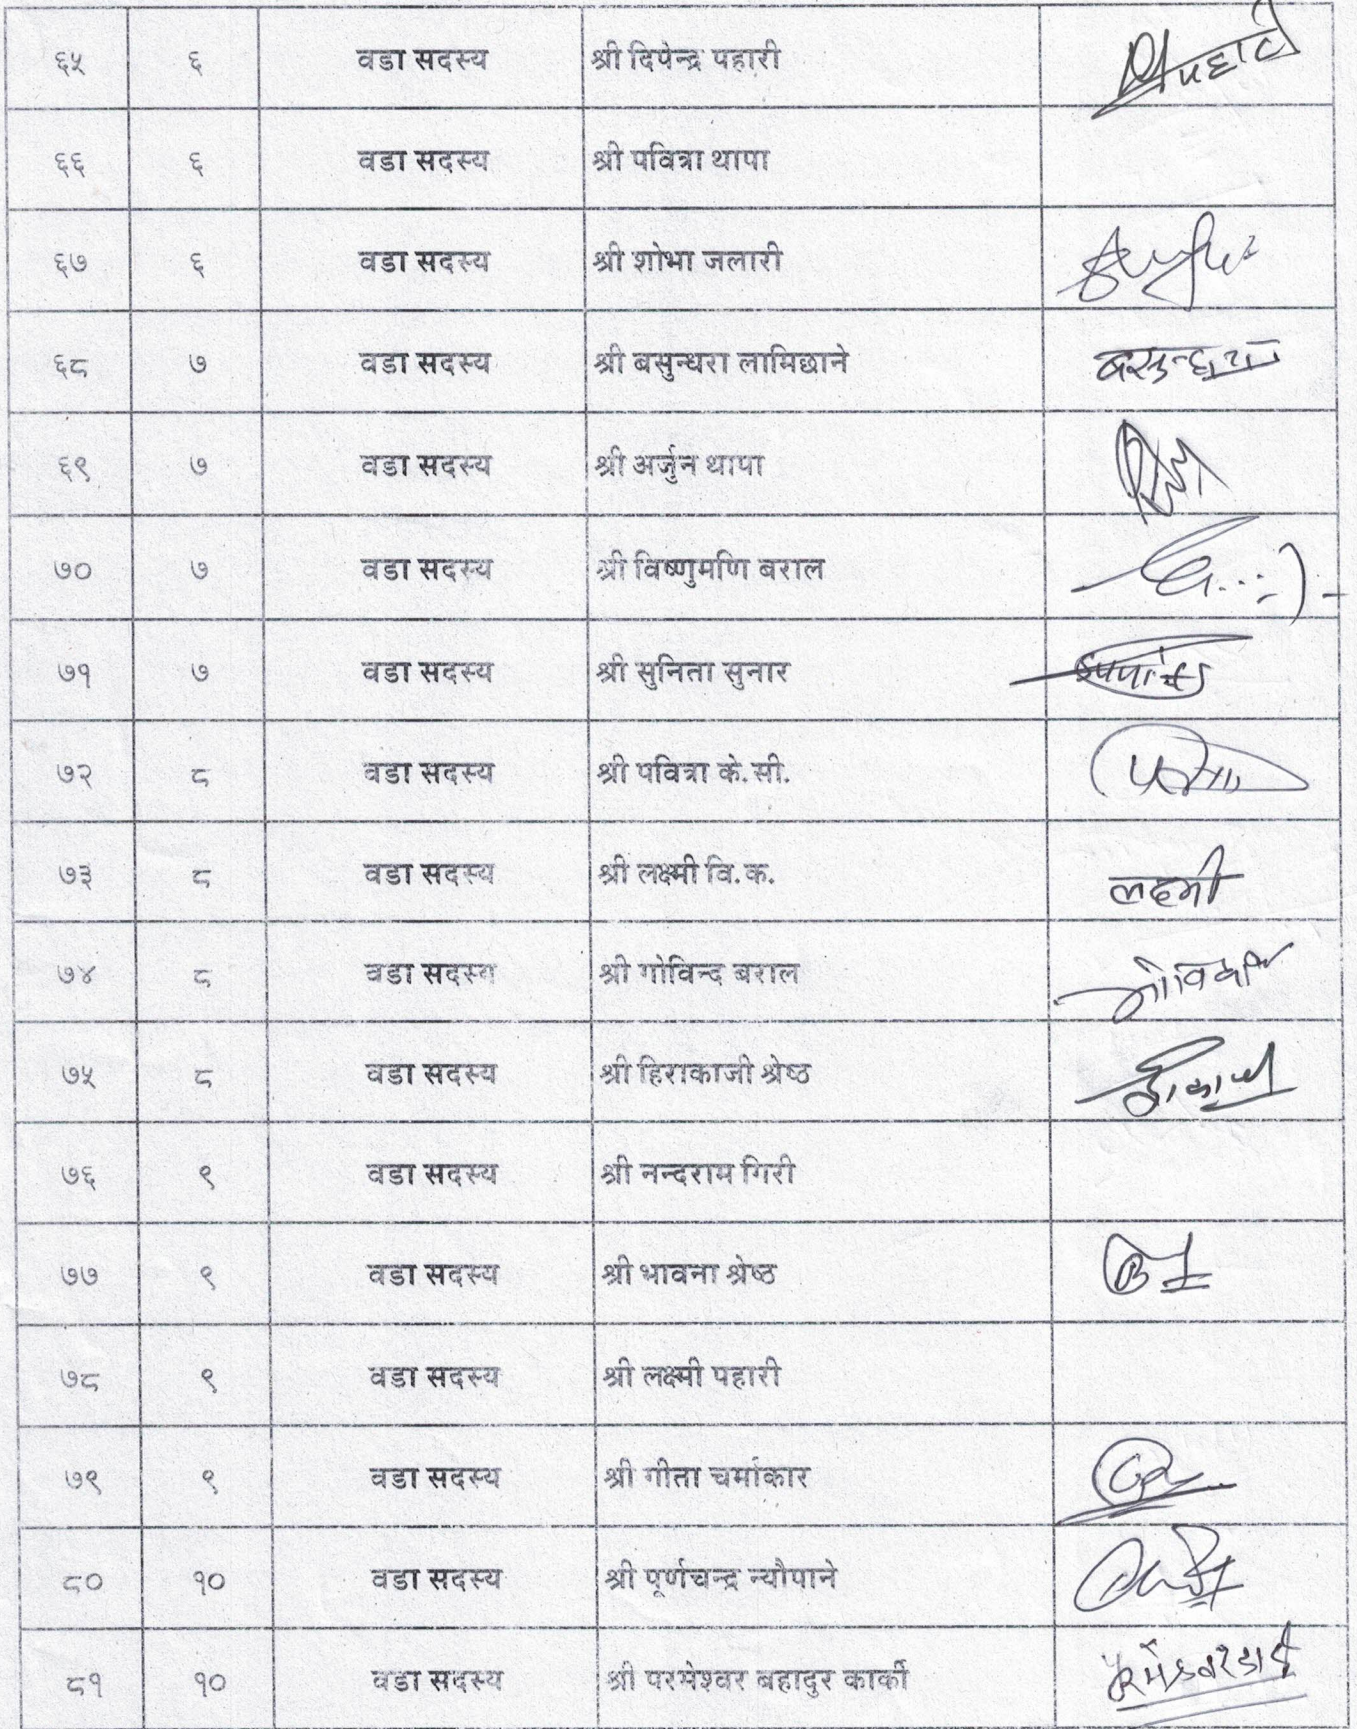 ६५ ६ वडा सदस्य श्री दिपेन्द्र पहारी
६६ ६ वडा सदस्य श्री पवित्रा थापा
६७ ६ वडा सदस्य श्री शोभा जलारी
६८ ७ वडा सदस्य श्री बसुन्धरा लामिछाने
६९ ७ वडा सदस्य श्री अर्जुन थापा
७० ७ वडा सदस्य श्री विष्णुमणि बराल
७१ ७ वडा सदस्य श्री सुनिता सुनार
७२ ८ वडा सदस्य श्री पवित्रा के.सी.
७३ ८ वडा सदस्य श्री लक्ष्मी वि.क. लक्ष्मी
७४ ८ वडा सदस्य श्री गोविन्द बराल
७५ ८ वडा सदस्य श्री हिराकाजी श्रेष्ठ
७६ ९ वडा सदस्य श्री नन्दराम गिरी
७७ ९ वडा सदस्य श्री भावना श्रेष्ठ
७८ ९ वडा सदस्य श्री लक्ष्मी पहारी
७९ ९ वडा सदस्य श्री गीता चर्माकार
८० १० वडा सदस्य श्री पूर्णचन्द्र न्यौपाने
८१ १० वडा सदस्य श्री परमेश्वर बहादुर कार्की